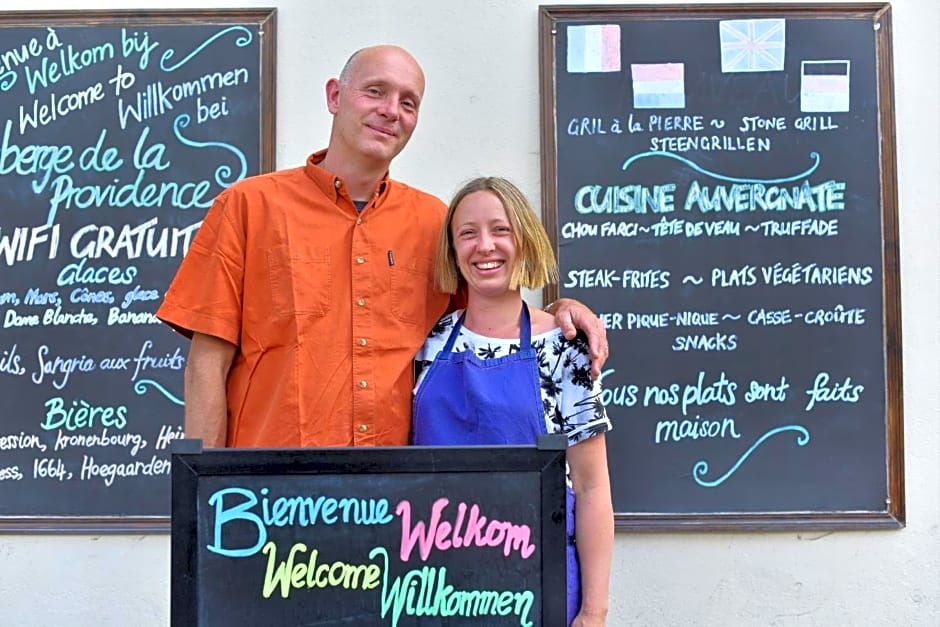 Welkom bij
Welcome to
Willkommen
bei
de la
Providence
WIFI GRATUIT
glaces
Mars, Cônes, glace
Dame Blanche,
Sangria aux fruits
Bières
Kronenbourg,
1664, Hoegaarden
GRIL à la PIERRE ~ STONE GRILL
STEENGRILLEN
CUISINE AUVERGNATE
CHOU FARCI ~ TÊTE DE VEAU ~ TRUFFADE
STEAK-FRITES ~ PLATS VÉGÉTARIENS
PIQUE-NIQUE ~ CASSE-CROÛTE
SNACKS
nos plats sont faits
maison
Bienvenue Welkom
Welcome Willkommen